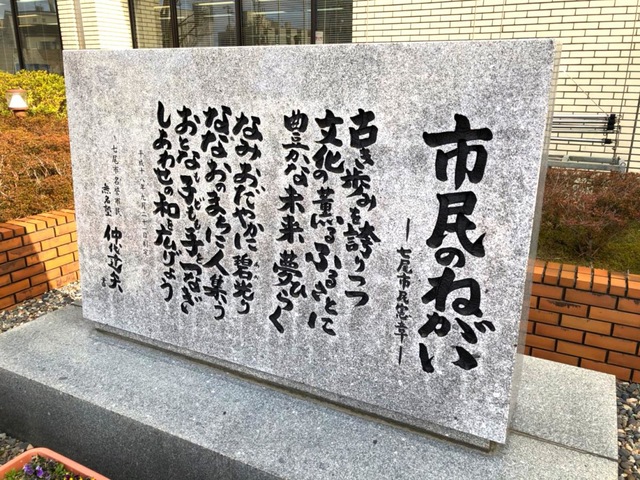 市民のねがい
―七尾市民憲章―
古き歩みを誇りつつ
文化の薫るふるさとに
豊かな未来夢ひらく
なみおだやかに碧光り
ななおのまちに人集う
おとな子ども手をつなぎ
しあわせの和を広げよう
七尾市名誉市民
無名塾 仲代達矢 書